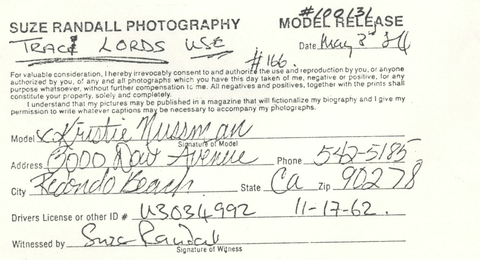 SUZE RANDALL PHOTOGRAPHY MODEL RELEASE
TRACI LORDS USE Date May 3rd 84
#166.
For valuable consideration, I hereby irrevocably consent to and authorize the use and reproduction by you, or anyone
authorized by you, of any and all photographs which you have this day taken of me, negative or positive, for any
purpose whatsoever, without further compensation to me. All negatives and positives, together with the prints shall
constitute your property, solely and completely.
I understand that my pictures may be published in a magazine that will fictionalize my biography and I give my
permission to write whatever captions may be necessary to accompany my photographs.
Model x Kristie Nussman
Signature of Model
Address Avenue Phone 542-5185
City Redondo Beach State Ca Zip 90278
Drivers License or other ID # U3034992 11-17-62.
Witnessed by Suze Randall
Signature of Witness